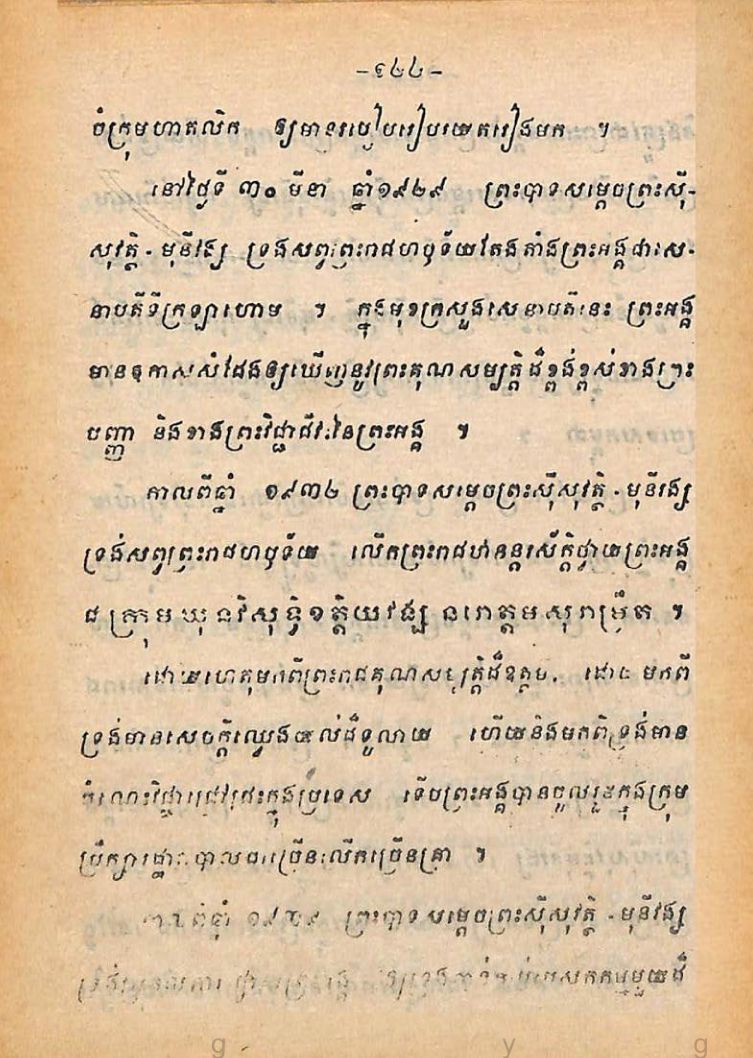 -១៤៤-
ចំក្រុមហាតលិក ឲ្យមានរបៀបរៀបរយតរៀងមក ។
នៅថ្ងៃទី ៣០ មីនា ឆ្នាំ១៩២៩ ព្រះបាទសម្តេចព្រះស៊ី-
សុវត្ថិ - មុនីវង្ស ទ្រង់សព្វព្រះរាជហឫទ័យតែងតាំងព្រះអង្គជាសេ-
នាបតីទីក្រឡាហោម ។ ក្នុងមុខក្រសួងសេនាបតីនេះ ព្រះអង្គ
មានឧកាសសំដែងឲ្យឃើញនូវព្រះគុណសម្បត្តិដ៏ខ្ពង់ខ្ពស់ខាងព្រះ
បញ្ញា និងខាងព្រះវិជ្ជាជីវៈនៃព្រះអង្គ ។
កាលពីឆ្នាំ ១៩៣២ ព្រះបាទសម្តេចព្រះស៊ីសុវត្ថិ - មុនីវង្ស
ទ្រង់សព្វព្រះរាជហឫទ័យ លើកព្រះរាជឋានន្តរស័ក្តិថ្វាយព្រះអង្គ
ជាក្រុមឃុនវិសុទ្ធិខត្តិយវង្ស នរោត្តមសុរាម្រឹត ។
ដោយហេតុមកពីព្រះរាជគុណសម្បត្តិដ៏ឧត្តម, ដោយមកពី
ទ្រង់មានសេចក្តីឈ្វេងយល់ដ៏ទូលាយ ហើយនិងមកពីទ្រង់មាន
ចំណេះវិជ្ជាជ្រៅជ្រះក្នុងប្រទេស ទើបព្រះអង្គបានចូលរួមក្នុងក្រុម
ប្រឹក្សា ច្រើនលើកច្រើនគ្រា ។
ឆ្នាំ ព្រះបាទសម្តេចព្រះស៊ីសុវត្ថិ - មុនីវង្ស
មួយដ៏
g y g